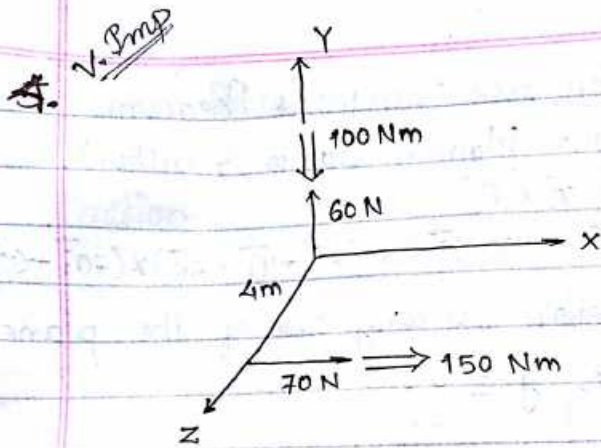 V. Imp
Y
100 Nm
60 N
X
4m
70 N
150 Nm
Z